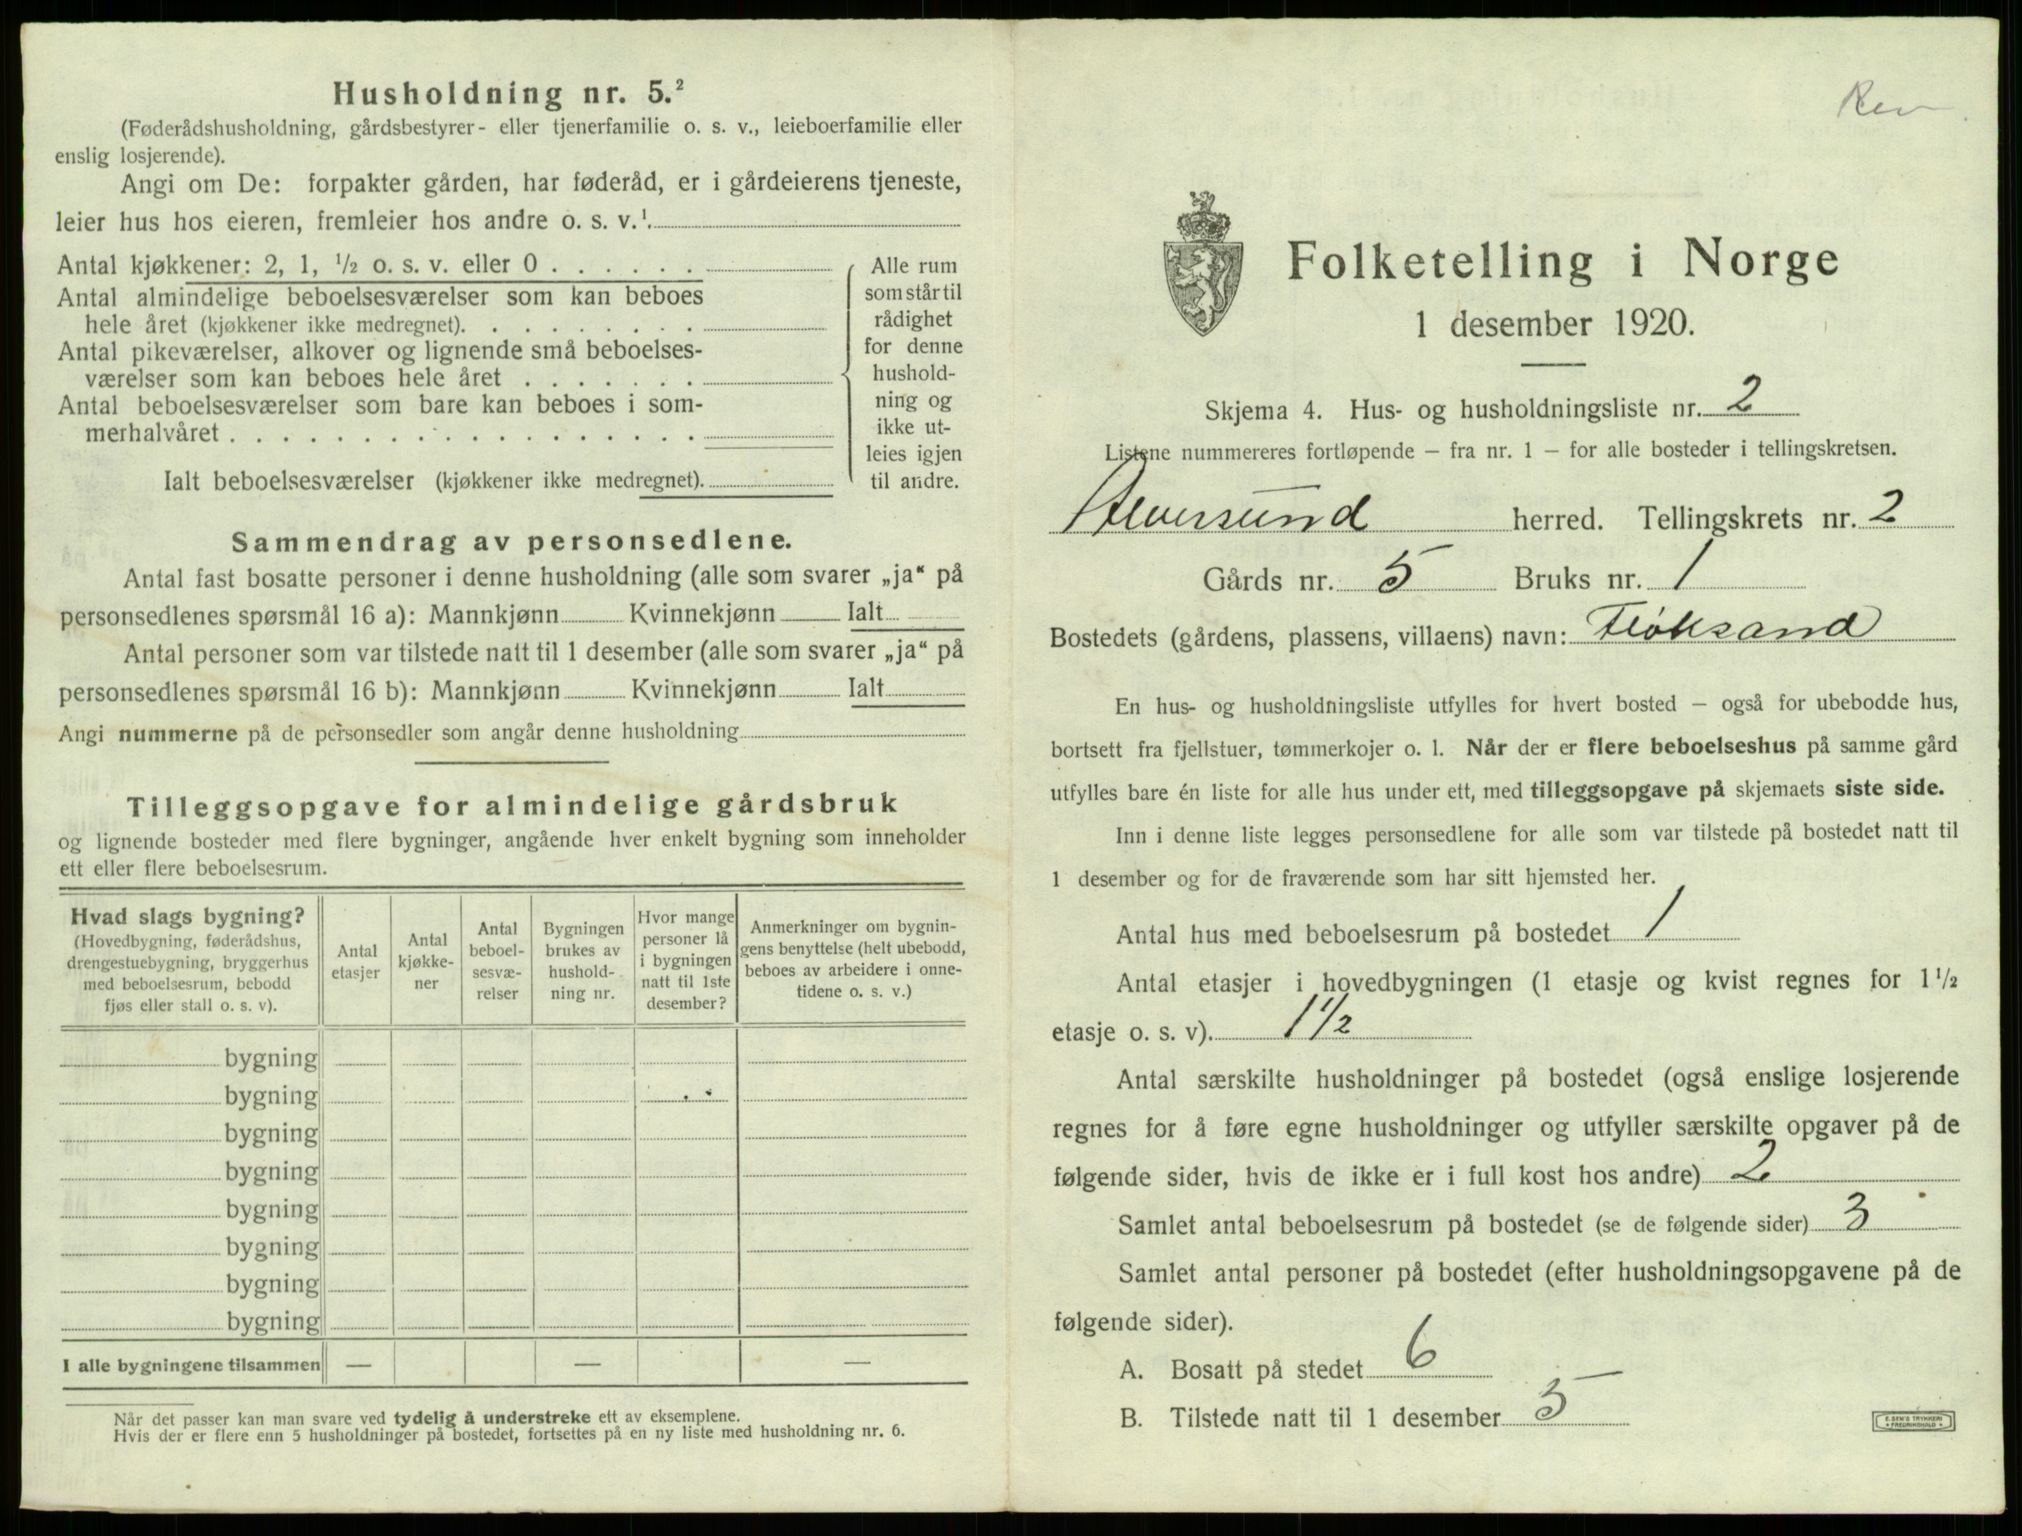 Husholdning nr. 5.²
(Føderådshusholdning, gårdsbestyrer- eller tjenerfamilie o. s. v., leieboerfamilie eller
enslig losjerende).
Angi om De: forpakter gården, har føderåd, er i gårdeierens tjeneste,
leier hus hos eieren, fremleier hos andre o. s. v.¹
Antal kjøkkener: 2, 1, ½ o. s. v. eller 0 . . . . . .
Antal almindelige beboelsesværelser som kan beboes
hele året (kjøkkener ikke medregnet). . . . . . . . .
Antal pikeværelser, alkover og lignende små beboelses-
værelser som kan beboes hele året . . . . . . .
Antal beboelsesværelser som bare kan beboes i som-
merhalvåret . . . . . . . . . . . . . . . . . .
Ialt beboelsesværelser (kjøkkener ikke medregnet).
Alle rum
som står til
rådighet
for denne
hushold-
ning og
ikke ut-
leies igjen
til andre.
Sammendrag av personsedlene.
Antal fast bosatte personer i denne husholdning (alle som svarer „ja“ på
personsedlenes spørsmål 16 a): Mannkjønn Kvinnekjønn Ialt
Antal personer som var tilstede natt til 1 desember (alle som svarer „ja“ på
personsedlenes spørsmål 16 b): Mannkjønn Kvinnekjønn Ialt
Angi nummerne på de personsedler som angår denne husholdning
Tilleggsopgave for almindelige gårdsbruk
og lignende bosteder med flere bygninger, angående hver enkelt bygning som inneholder
ett eller flere beboelsesrum.
Hvad slags bygning?
(Hovedbygning, føderådshus,
drengestuebygning, bryggerhus
med beboelsesrum, bebodd
fjøs eller stall o. s. v).
Antal
etasjer
Antal
kjøkke-
ner
Antal
beboel-
sesvæ-
relser
Bygningen
brukes av
hushold-
ning nr.
Hvor mange
personer lå
i bygningen
natt til 1ste
desember?
Anmerkninger om bygnin-
gens benyttelse (helt ubebodd,
beboes av arbeidere i onne-
tidene o. s. v.)
bygning
bygning
bygning
bygning
bygning
bygning
bygning
bygning
I alle bygningene tilsammen — — —
Når det passer kan man svare ved tydelig å understreke ett av eksemplene.
Hvis der er flere enn 5 husholdninger på bostedet, fortsettes på en ny liste med husholdning nr. 6.
Rev
Folketelling i Norge
1 desember 1920.
Skjema 4. Hus- og husholdningsliste nr. 2
Listene nummereres fortløpende – fra nr. 1 – for alle bosteder i tellingskretsen.
Alversund herred. Tellingskrets nr. 2
Gårds nr. 5 Bruks nr. 1
Bostedets (gårdens, plassens, villaens) navn: Fløksand
En hus- og husholdningsliste utfylles for hvert bosted – også for ubebodde hus,
bortsett fra fjellstuer, tømmerkojer o. l. Når der er flere beboelseshus på samme gård
utfylles bare én liste for alle hus under ett, med tilleggsopgave på skjemaets siste side.
Inn i denne liste legges personsedlene for alle som var tilstede på bostedet natt til
1 desember og for de fraværende som har sitt hjemsted her.
Antal hus med beboelsesrum på bostedet 1
Antal etasjer i hovedbygningen (1 etasje og kvist regnes for 1½
etasje o. s. v). 1½
Antal særskilte husholdninger på bostedet (også enslige losjerende
regnes for å føre egne husholdninger og utfyller særskilte opgaver på de
følgende sider, hvis de ikke er i full kost hos andre) 2
Samlet antal beboelsesrum på bostedet (se de følgende sider) 3
Samlet antal personer på bostedet (efter husholdningsopgavene på de
følgende sider).
A. Bosatt på stedet 6
B. Tilstede natt til 1 desember 5
E. SEM'S TRYKKERI
FREDRIKSHALD